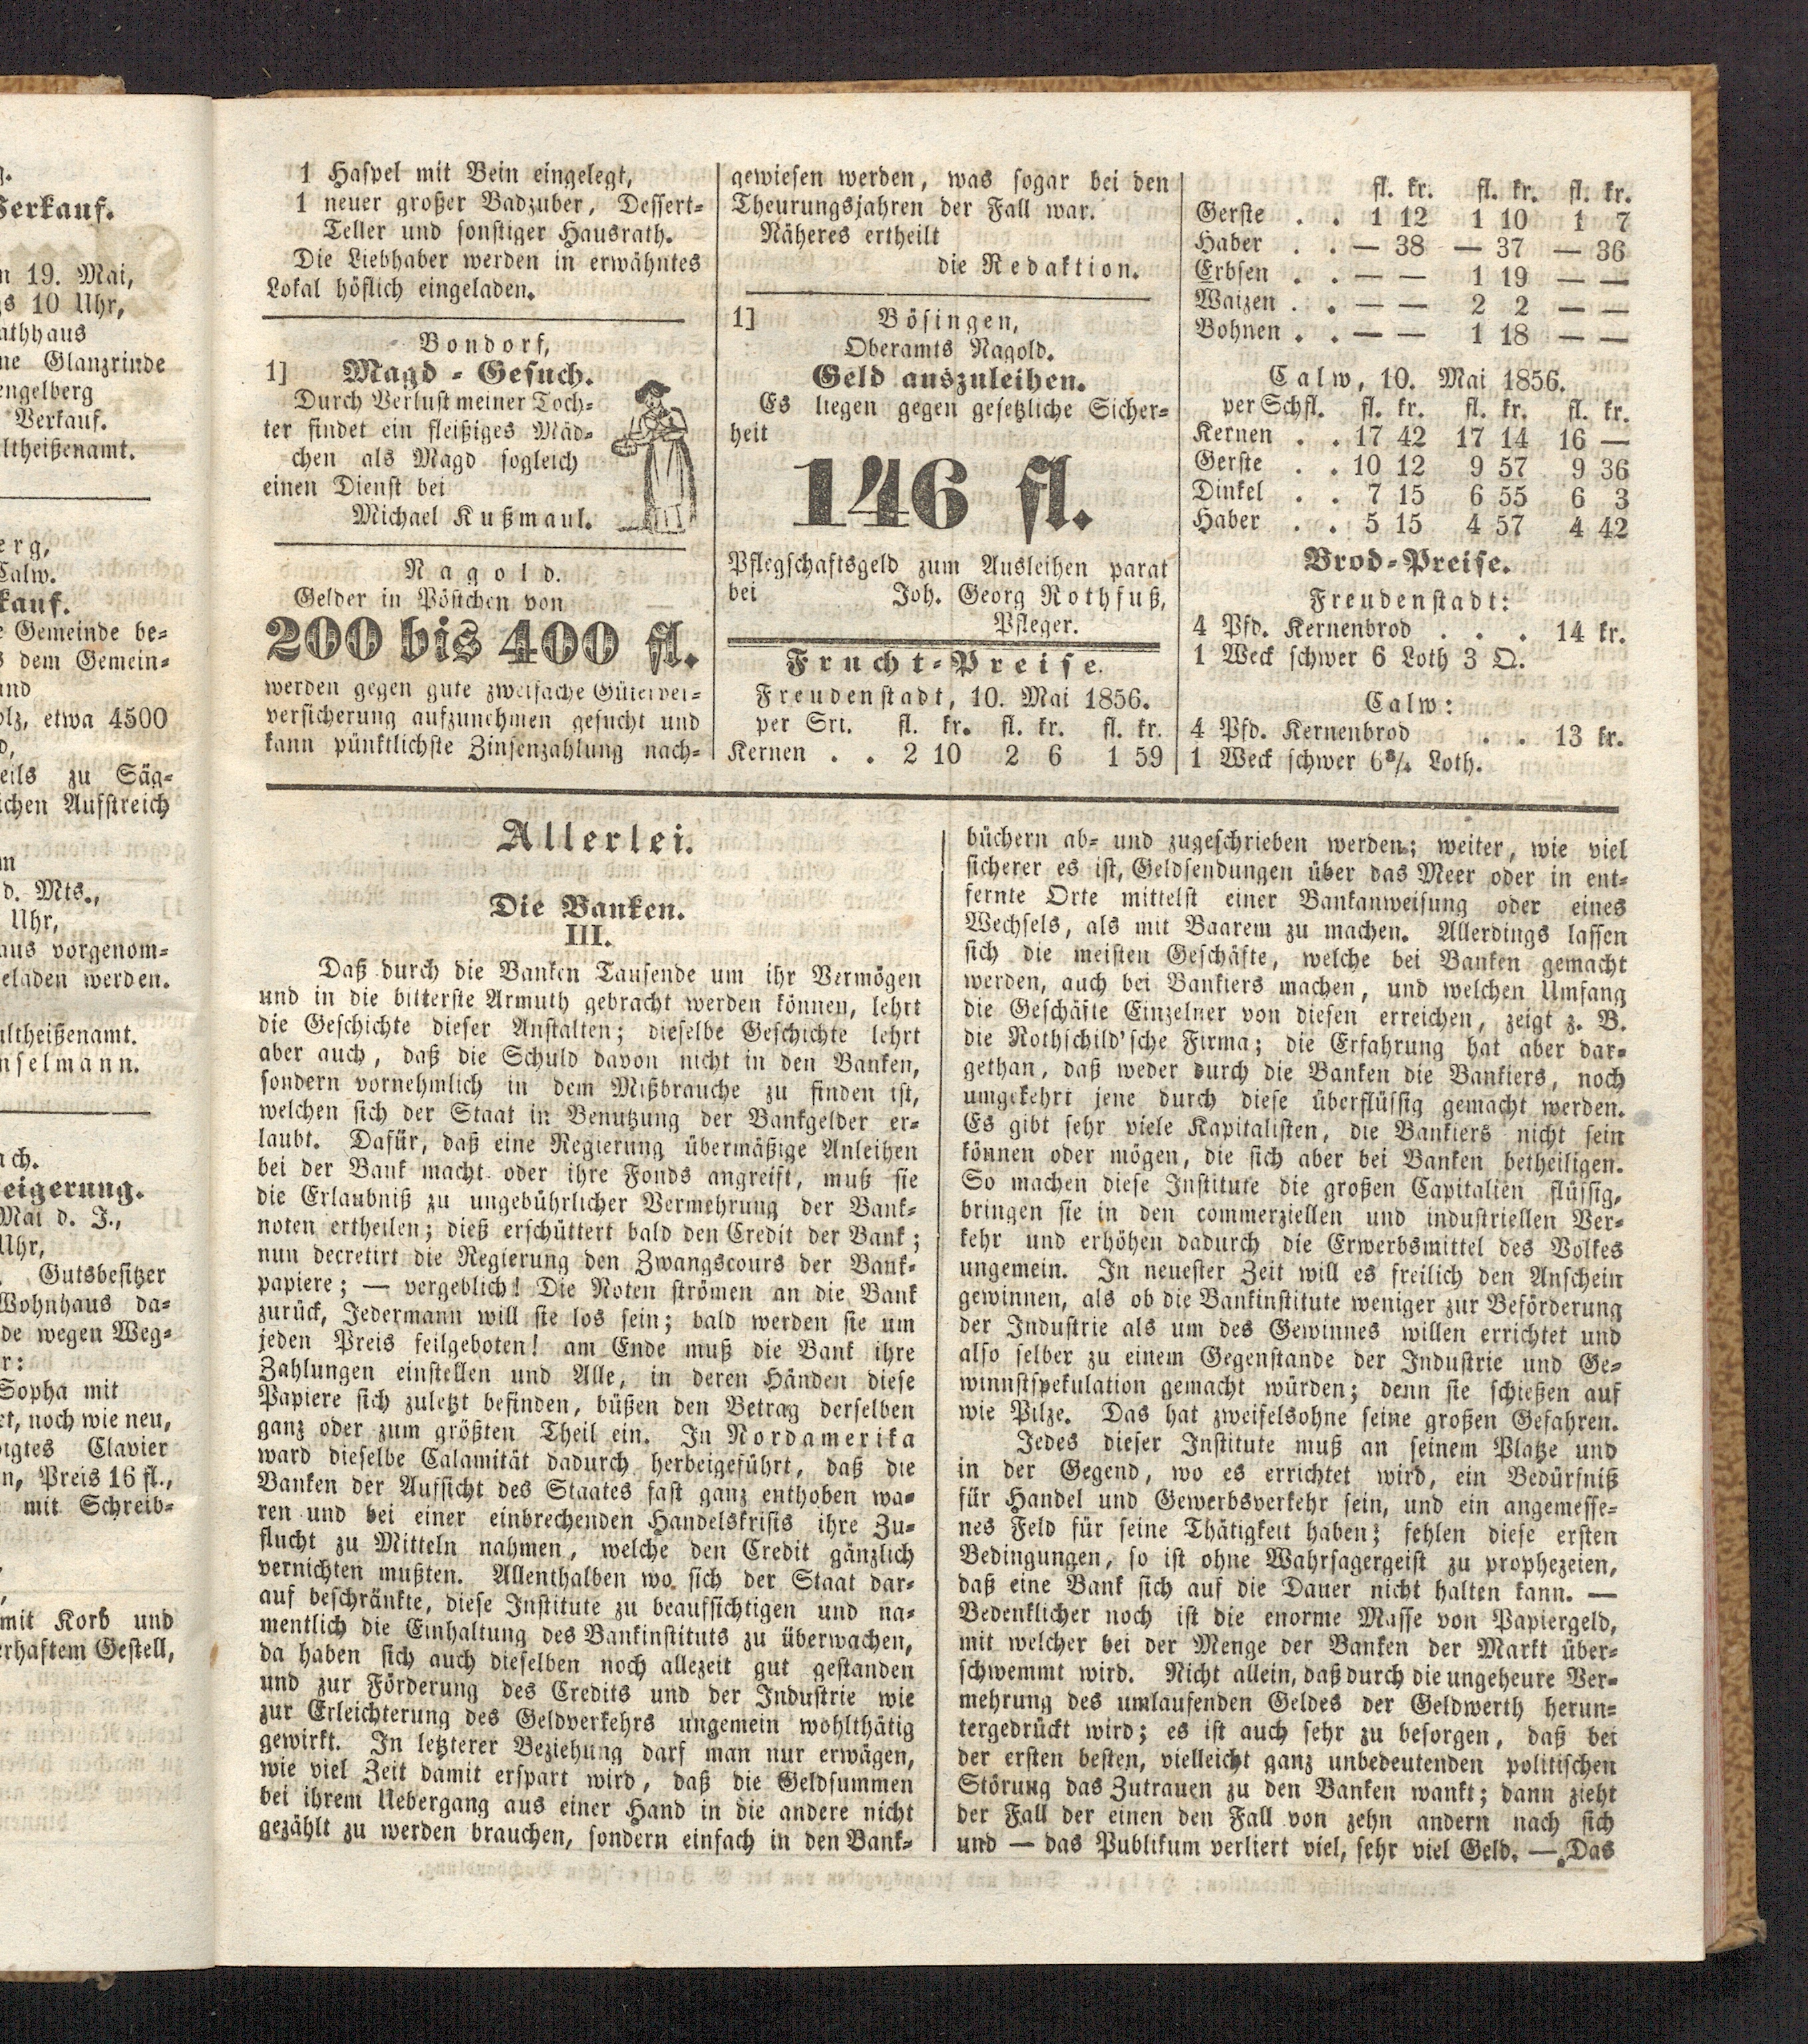 g.
Verkauf.
n 19. Mai,
gs 10 Uhr,
athhaus
ne Glanzrinde
engelberg
Verkauf.
ltheißenamt.
erg,
Calw.
kauf.
e Gemeinde be=
s dem Gemein=
und
olz, etwa 4500
eils zu Säg=
ichen Aufstreich
m
d. Mts.,
Uhr,
aus vorgenom=
eladen werden.
ultheißenamt.
nselmann.
ach.
eigerung.
Mai d. J.,
Uhr,
Gutsbesitzer
Wohnhaus da=
de wegen Weg=
r:
Sopha mit
et, noch wie neu,
igtes Clavier
n, Preis 16 fl.,
mit Schreib=
mit Korb und
erhaftem Gestell,
1 Haspel mit Bein eingelegt,
1 neuer großer Badzuber, Dessert=
Teller und sonstiger Hausrath.
Die Liebhaber werden in erwähntes
Lokal höflich eingeladen.
Bondorf,
1] Magd = Gesuch.
Durch Verlust meiner Toch=
ter findet ein fleißiges Mäd=
chen als Magd sogleich
einen Dienst bei
Michael Kußmaul.
Nagold.
Gelder in Pöstchen von
200 bis 400 fl.
werden gegen gute zweifache Güterver=
versicherung aufzunehmen gesucht und
kann pünktlichste Zinsenzahlung nach=
gewiesen werden, was sogar bei den
Theurungsjahren der Fall war.
Näheres ertheilt
die Redaktion.
1] Bösingen,
Oberamts Nagold.
Geld auszuleihen.
Es liegen gegen gesetzliche Sicher=
heit
146 fl.
Pflegschaftsgeld zum Ausleihen parat
bei Joh. Georg Rothfuß,
Pfleger.
Frucht=Preise.
Freudenstadt, 10. Mai 1856.
per Sri. fl. kr. fl. kr. fl. kr.
Kernen . . 2 10 2 6 1 59
fl. kr. fl. kr. fl. kr.
Gerste . . 1 12 1 10 1 7
Haber . . — 38 — 37 — 36
Erbsen . . — — 1 19 — —
Waizen . . — — 2 2 — —
Bohnen . . — — 1 18 — —
Calw, 10. Mai 1856.
per Schfl. fl. kr. fl. kr. fl. kr.
Kernen . . 17 42 17 14 16 —
Gerste . . 10 12 9 57 9 36
Dinkel . . 7 15 6 55 6 3
Haber . . 5 15 4 57 4 42
Brod=Preise.
Freudenstadt:
4 Pfd. Kernenbrod . . . 14 kr.
1 Weck schwer 6 Loth 3 Q.
Calw:
4 Pfd. Kernenbrod . . 13 kr.
1 Weck schwer 6³/₄ Loth.
Allerlei.
Die Banken.
III.
Daß durch die Banken Tausende um ihr Vermögen
und in die bitterste Armuth gebracht werden können, lehrt
die Geschichte dieser Anstalten; dieselbe Geschichte lehrt
aber auch, daß die Schuld davon nicht in den Banken,
sondern vornehmlich in dem Mißbrauche zu finden ist,
welchen sich der Staat in Benutzung der Bankgelder er=
laubt. Dafür, daß eine Regierung übermäßige Anleihen
bei der Bank macht oder ihre Fonds angreift, muß sie
die Erlaubniß zu ungebührlicher Vermehrung der Bank=
noten ertheilen; dieß erschüttert bald den Credit der Bank;
nun decretirt die Regierung den Zwangscours der Bank=
papiere; — vergeblich! Die Noten strömen an die Bank
zurück, Jedermann will sie los sein; bald werden sie um
jeden Preis feilgeboten! am Ende muß die Bank ihre
Zahlungen einstellen und Alle, in deren Händen diese
Papiere sich zuletzt befinden, büßen den Betrag derselben
ganz oder zum größten Theil ein. In Nordamerika
ward dieselbe Calamität dadurch herbeigeführt, daß die
Banken der Aufsicht des Staates fast ganz enthoben wa=
ren und bei einer einbrechenden Handelskrisis ihre Zu=
flucht zu Mitteln nahmen, welche den Credit gänzlich
vernichten mußten. Allenthalben wo sich der Staat dar=
auf beschränkte, diese Institute zu beaufsichtigen und na=
mentlich die Einhaltung des Bankinstituts zu überwachen,
da haben sich auch dieselben noch allezeit gut gestanden
und zur Förderung des Credits und der Industrie wie
zur Erleichterung des Geldverkehrs ungemein wohlthätig
gewirkt. In letzterer Beziehung darf man nur erwägen,
wie viel Zeit damit erspart wird, daß die Geldsummen
bei ihrem Uebergang aus einer Hand in die andere nicht
gezählt zu werden brauchen, sondern einfach in den Bank=
büchern ab= und zugeschrieben werden; weiter, wie viel
sicherer es ist, Geldsendungen über das Meer oder in ent=
fernte Orte mittelst einer Bankanweisung oder eines
Wechsels, als mit Baarem zu machen. Allerdings lassen
sich die meisten Geschäfte, welche bei Banken gemacht
werden, auch bei Bankiers machen, und welchen Umfang
die Geschäfte Einzelner von diesen erreichen, zeigt z. B.
die Rothschild'sche Firma; die Erfahrung hat aber dar=
gethan, daß weder durch die Banken die Bankiers, noch
umgekehrt jene durch diese überflüssig gemacht werden.
Es gibt sehr viele Kapitalisten, die Bankiers nicht sein
können oder mögen, die sich aber bei Banken betheiligen.
So machen diese Institute die großen Capitalien flüssig,
bringen sie in den commerziellen und industriellen Ver=
kehr und erhöhen dadurch die Erwerbsmittel des Volkes
ungemein. In neuester Zeit will es freilich den Anschein
gewinnen, als ob die Bankinstitute weniger zur Beförderung
der Industrie als um des Gewinnes willen errichtet und
also selber zu einem Gegenstande der Industrie und Ge=
winnstspekulation gemacht würden; denn sie schießen auf
wie Pilze. Das hat zweifelsohne seine großen Gefahren.
Jedes dieser Institute muß an seinem Platze und
in der Gegend, wo es errichtet wird, ein Bedürfniß
für Handel und Gewerbsverkehr sein, und ein angemesse=
nes Feld für seine Thätigkeit haben; fehlen diese ersten
Bedingungen, so ist ohne Wahrsagergeist zu prophezeien,
daß eine Bank sich auf die Dauer nicht halten kann. —
Bedenklicher noch ist die enorme Masse von Papiergeld,
mit welcher bei der Menge der Banken der Markt über=
schwemmt wird. Nicht allein, daß durch die ungeheure Ver=
mehrung des umlaufenden Geldes der Geldwerth herun=
tergedrückt wird; es ist auch sehr zu besorgen, daß bei
der ersten besten, vielleicht ganz unbedeutenden politischen
Störung das Zutrauen zu den Banken wankt; dann zieht
der Fall der einen den Fall von zehn andern nach sich
und — das Publikum verliert viel, sehr viel Geld. — Das